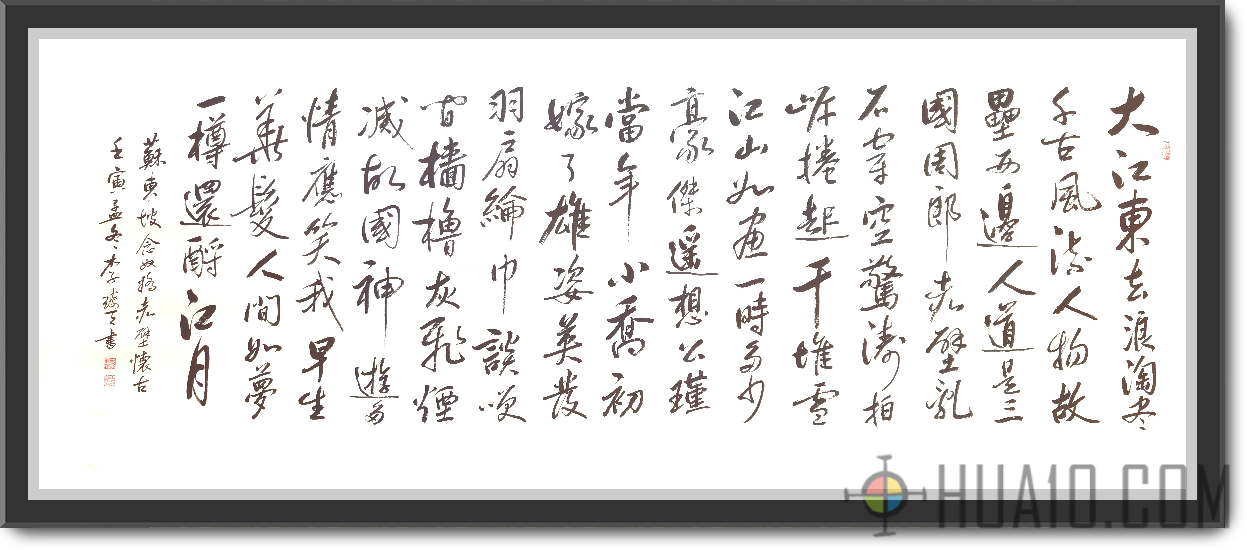 大江東去浪淘尽
千古風流人物故
壘西邊人道是三
國周郎赤壁亂
石穿空驚濤拍
岸捲起千堆雪
江山如畫一時多少
豪傑遥想公瑾
當年小喬初
嫁了雄姿英發
羽扇綸巾談笑
間檣櫓灰飛煙
滅故國神遊多
情應笑我早生
華髮人間如夢
一樽還酹江月
蘇東坡念奴嬌赤壁懷古
壬寅孟冬李書
HUA10.COM